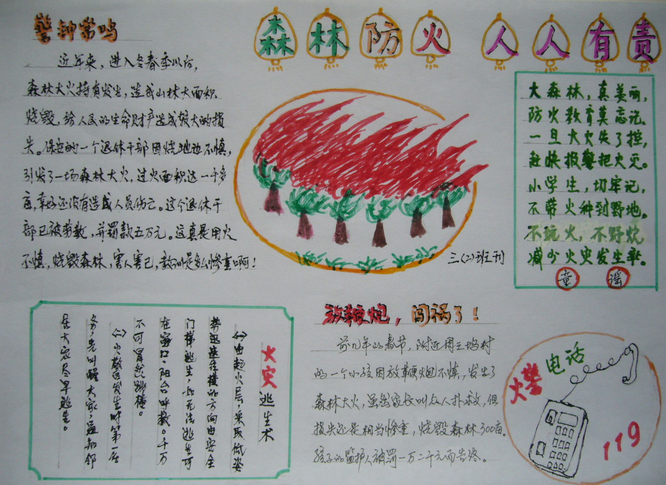 森林防火 人人有责
警钟常鸣
近年来，进入冬春季以后，
森林大火持有发生，造成山林大面积
烧毁，给人民的生命财产造成很大的损
失。保定的一个退休干部因烧地边不慎，
引发了一场森林大火，过火面积达一十多
亩，幸好还没有造成人员伤亡。这个退休干
部已被拘教，并罚款五万元。这真是用火
不慎，烧毁森林，害人害己，教训是惨重啊！
三(2)班王刊
大森林，真美丽，
防火教育莫忘记，
一旦大火失了控，
赶快报警把火灭。
小学生，切牢记，
不带火种到野地。
不玩火，不野炊，
减少火灾发生率。
童谣
火灾逃生术
(一)由起火层，采取低姿
势迅速往楼的方向由安全
门梯逃生，如无法逃生可
在窗口、阳台呼救。千万
不可冒然跳楼。
(二)火势发生时第一
先叫醒大家，通知邻
居火灾及早逃生。
放鞭炮，闯祸了！
前几年的春节，附近村
的一个小孩因放鞭炮不慎，发生了
森林大火，虽然家长叫众人扑救，但
损失还是相当惨重，烧毁森林300亩，
孩子的监护人被罚一万二千元而告终。
火警电话
119